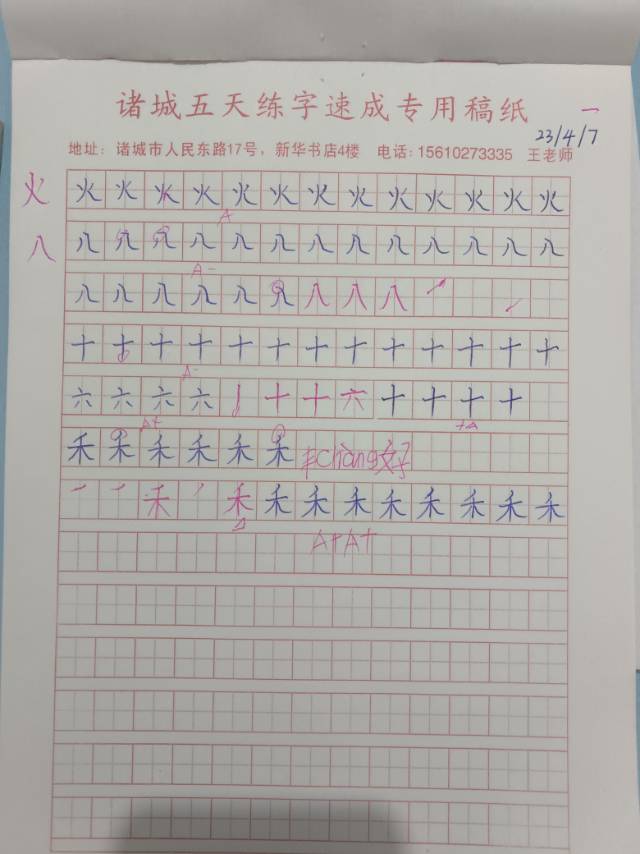 诸城五天练字速成专用稿纸 一
23/4/7
地址：诸城市人民东路17号，新华书店4楼 电话：15610273335 王老师
火 火 火 火 火 火 火 火 火 火 火 火 火 火
A
八 八 八 八 八 八 八 八 八 八 八 八 八 八
A-
八 八 八 八 八 八 八 八 八
十 十 十 十 十 十 十 十 十 十 十 十 十
A-
六 六 六 六 丨 十 十 六 十 十 十 十
A+ +A
禾 禾 禾 禾 禾 禾 非cháng好
一 一 禾 禾 禾 禾 禾 禾 禾 禾 禾 禾
A+A+